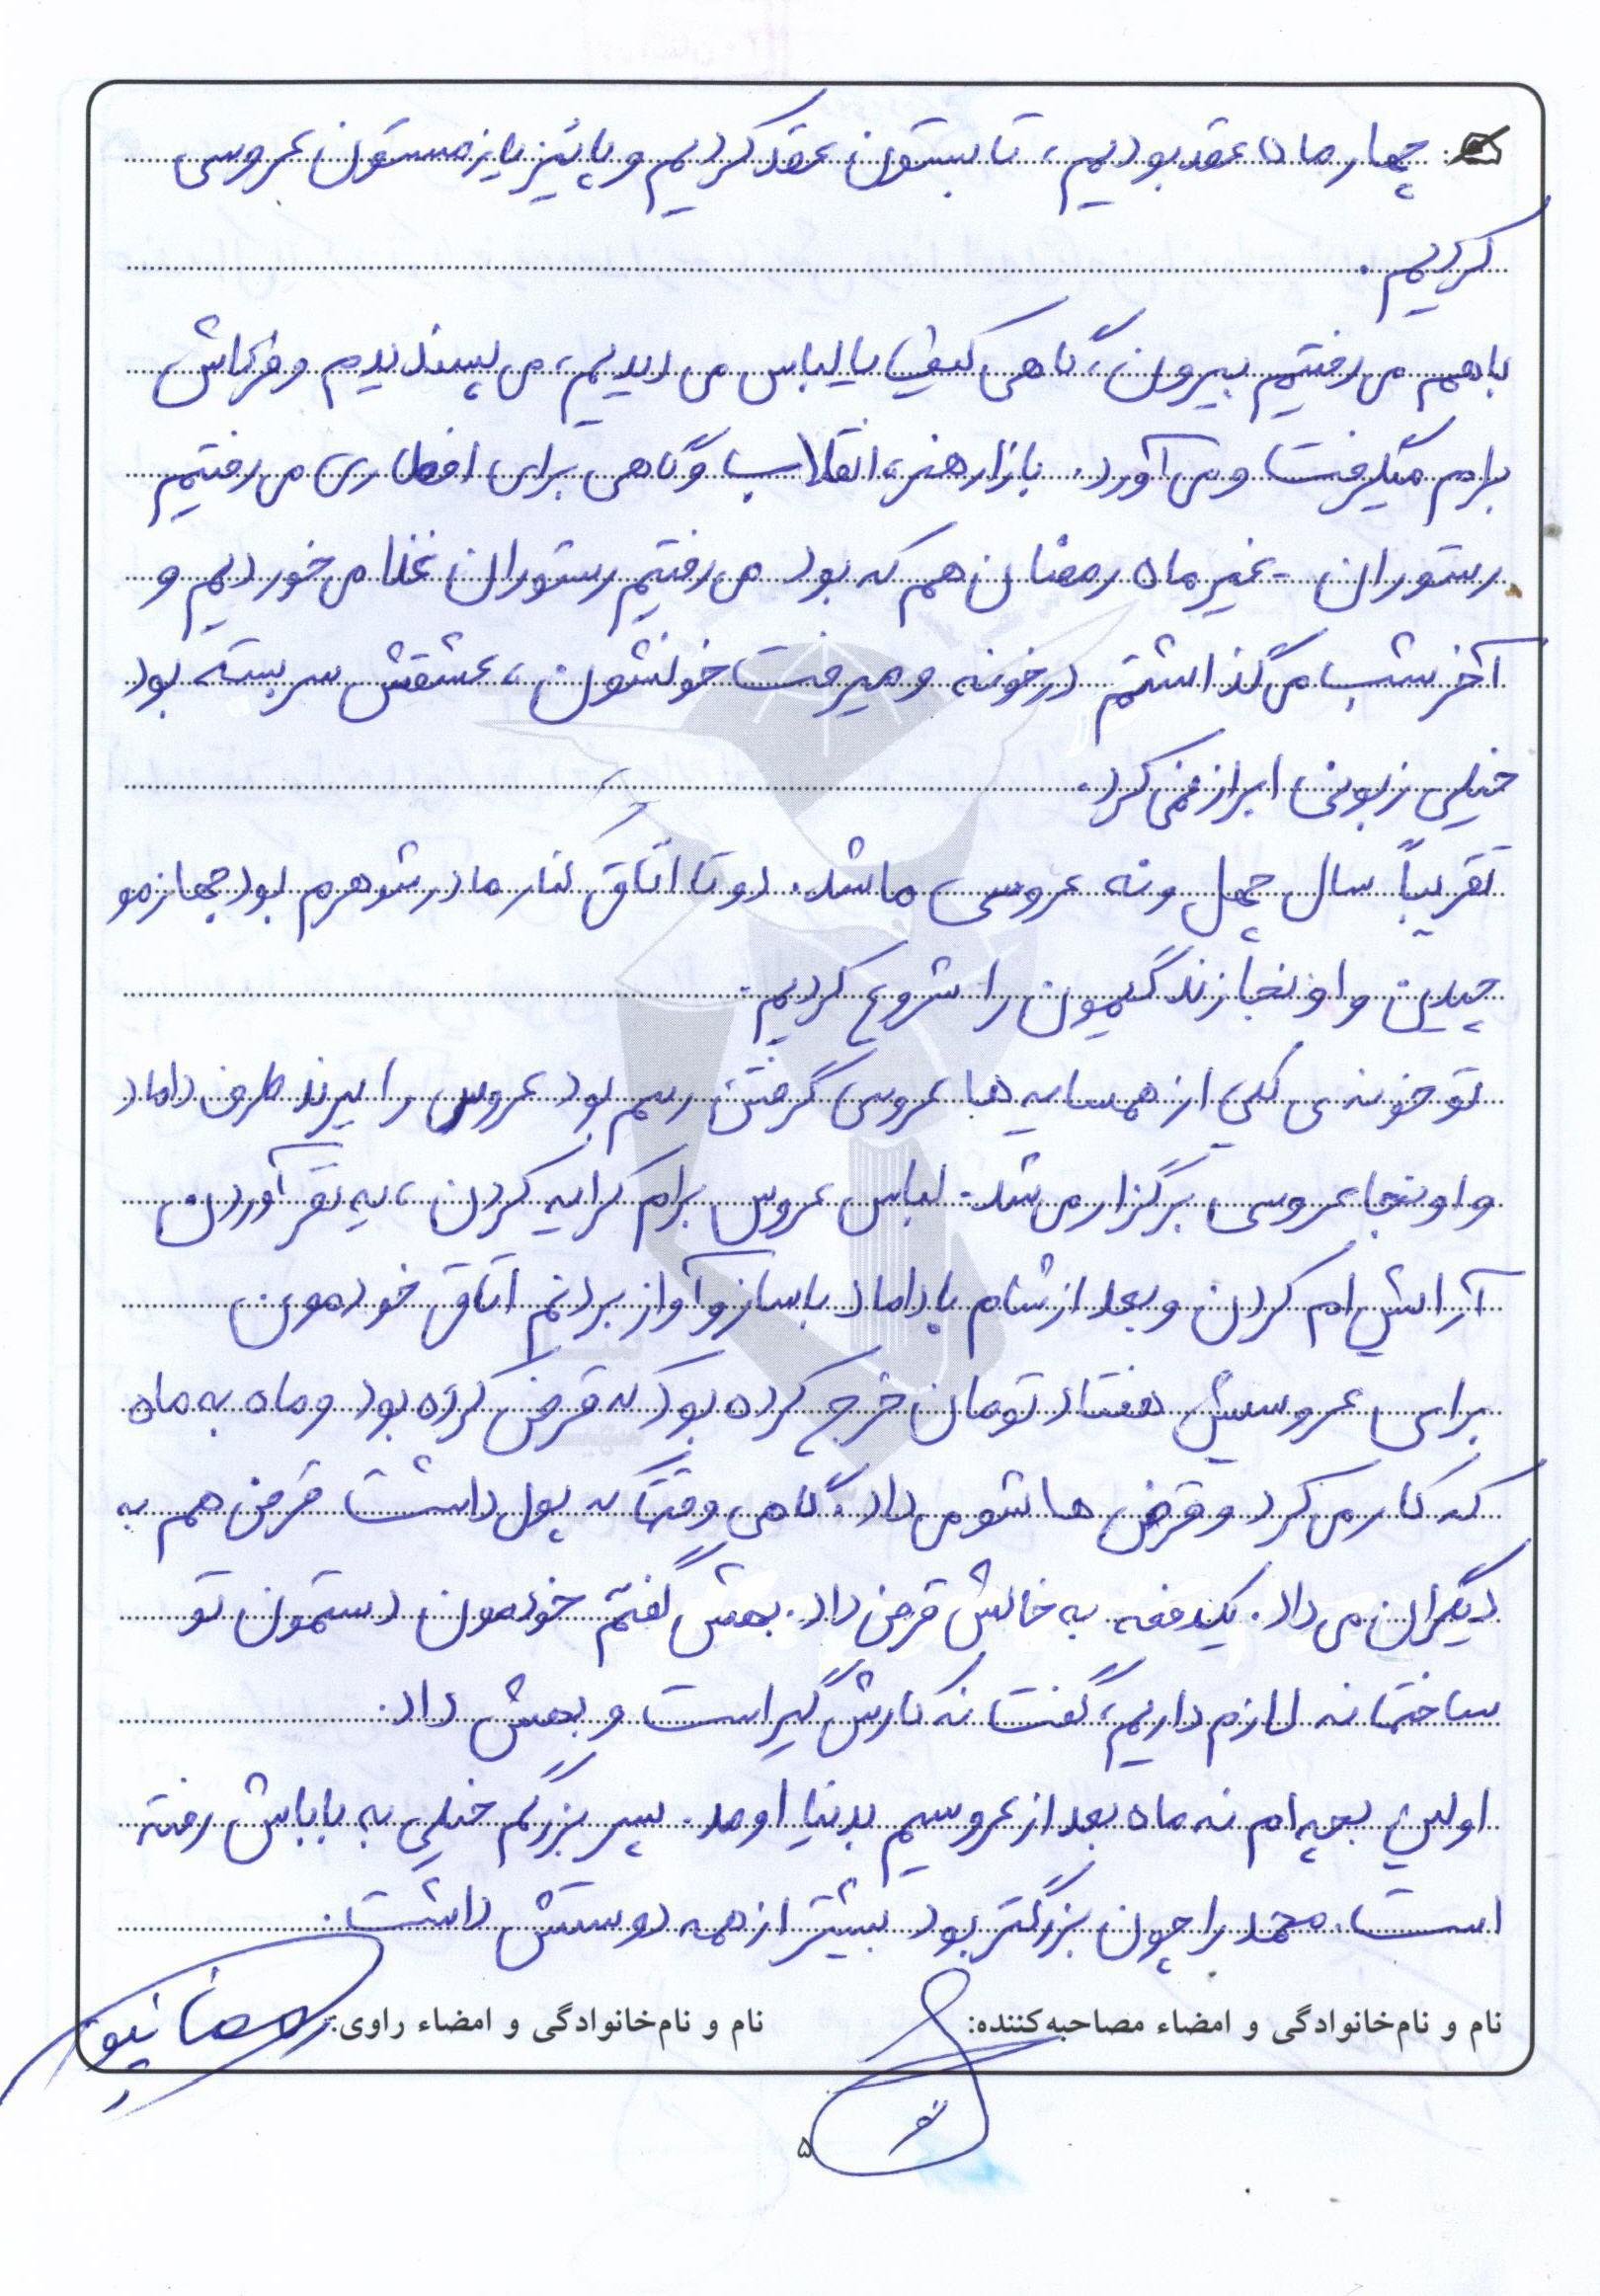 چهار ماه عقد بودیم، تابستون عقد کردیم و پائیز یا زمستون عروسی
کردیم.
باهم می رفتیم بیرون، گاهی کیف یا لباس می دیدیم، می پسندیدم و فرداش
برام میگرفت و می آورد. بازار هنر، انقلاب و گاهی برای افطاری می رفتیم
رستوران - غیر ماه رمضان هم که بود می رفتیم رستوران غذا می خوردیم و
آخر شب می گذاشتم درخونه و میرفت خونشون، عشقش سربسته بود
خیلی زبونی ابراز نمی کرد.
تقریباً سال چهل ونه عروسی ما شد. دو تا اتاق کنار مادر شوهرم بود جهازمو
چیدین و اونجا زندگیمون را شروع کردیم.
تو خونه ی یکی از همسایه ها عروسی گرفتن رسم بود عروس را ببرند طرف داماد
و اونجا عروسی برگزار می شد. لباس عروس برام کرایه کردن، یه نفر آوردن
آرایش ام کردن و بعد از شام با داماد با ساز و آواز بردنم اتاق خودمون
برای عروسیش هفتاد تومان خرج کرده بود که قرض کرده بود و ماه به ماه
که کار می کرد و قرض هاشو می داد، گاهی وقتها که پول داشت قرض هم به
دیگران می داد. یکدفعه به خالش قرض داد. بهش گفتم خودمون دستمون تو
ساختمانه لازم داریم، گفت نه کارش گیراست و بهش داد.
اولین بچه ام نه ماه بعد از عروسیم بدنیا اومد. پسر بزرگم خیلی به باباش رفته
است. محمد را چون بزرگتر بود بیشتر از همه دوستش داشت.
نام و نام‌خانوادگی و امضاء مصاحبه‌کننده: نام و نام‌خانوادگی و امضاء راوی:
۵